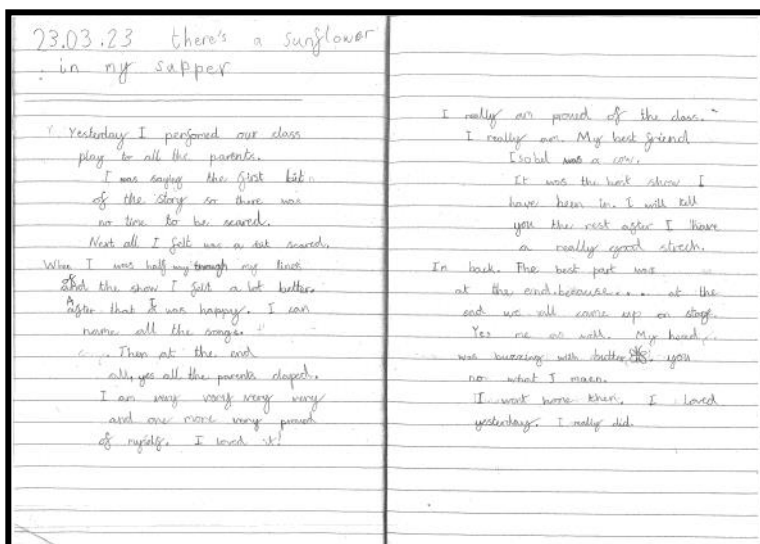 23.03.23 there's a sunflower
in my supper
Yesterday I perfomed our class
play to all the parents.
I was saying the first bit
of the story so there was
no time to be scared.
Next all I felt was a bit scared.
When I was half my through my lines
and the show I felt a lot better.
After that I was happy. I can
name all the songs.
Then at the end
all, yes all the parents claped.
I am very very very very
and one more very proud
of myself. I loved it!
I really am proud of the class.
I really am. My best friend
Isobel was a cow.
It was the best show I
have been in. I will tell
you the rest after I have
a really good strech.
Im back. The best part was
at the end because.... at the
end we all came up on stage.
Yes me as well. My head
was buzzing with butter you
no what I maen.
I went home then. I loved
yesterday. I really did.